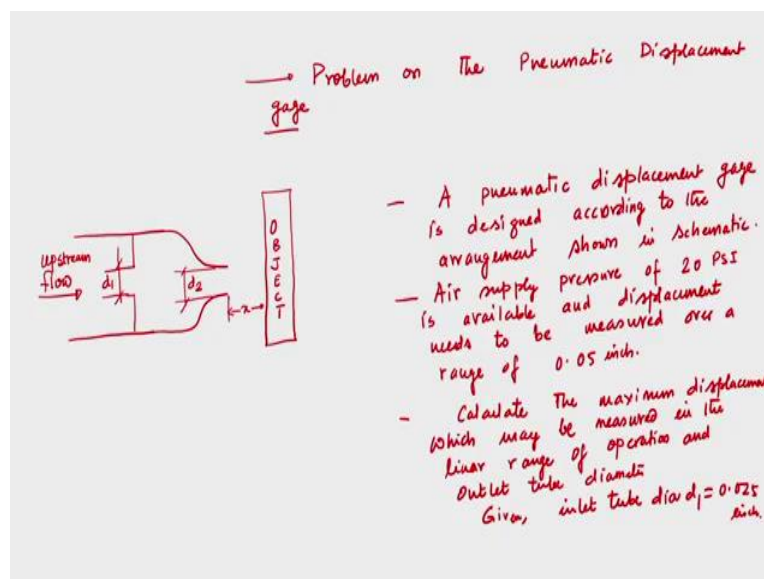 → Problem on The Pneumatic Displacement
gage
upstream
flow
d1
d2
x
OBJECT
– A pneumatic displacement gage
is designed according to the
arrangement shown in schematic.
– Air supply pressure of 20 PSI
is available and displacement
needs to be measured over a
range of 0.05 inch.
– Calculate The maximum displacemen
which may be measured in the
linear range of operation and
outlet tube diameter
Given, inlet tube dia d1 = 0.025
inch.